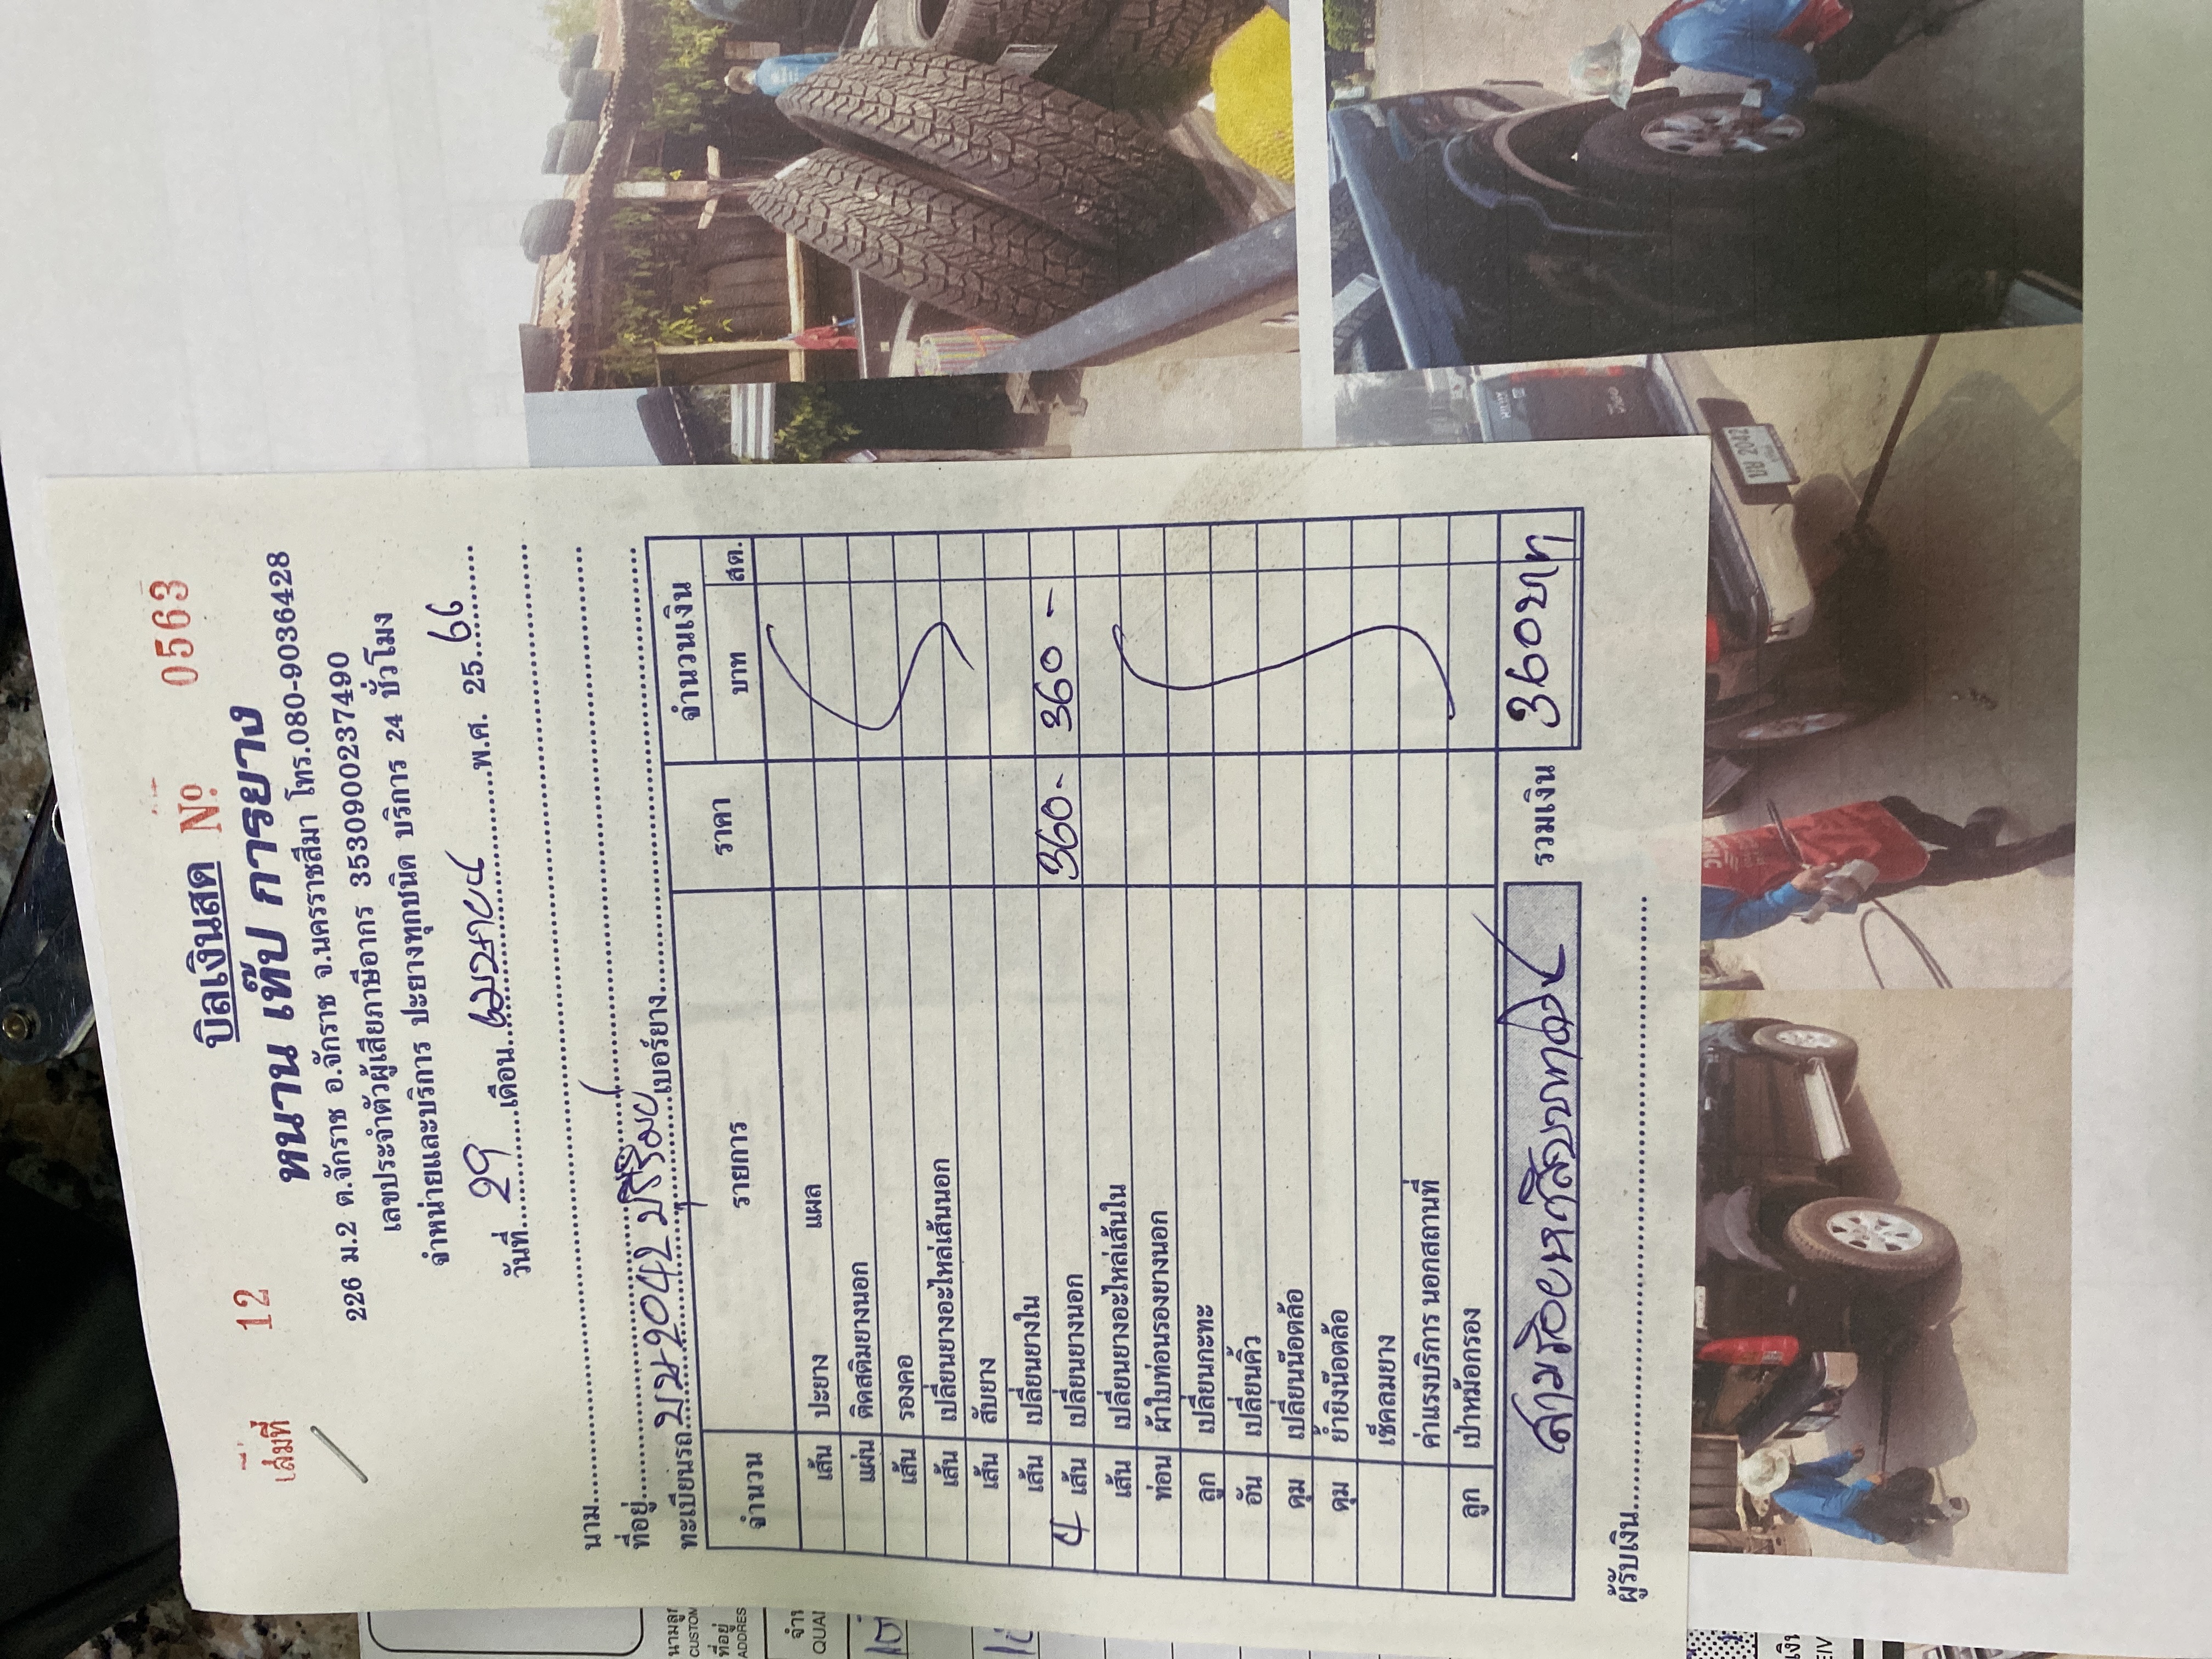 เล่มที่ 12
บิลเงินสด Nº 0563
หนาน เท๊ป การยาง
226 ม.2 ต.จักราช อ.จักราช จ.นครราชสีมา โทร.080-9036428
เลขประจำตัวผู้เสียภาษีอากร 3530900237490
จำหน่ายและบริการ ปะยางทุกชนิด บริการ 24 ชั่วโมง
วันที่ 29 เดือน เมษายน พ.ศ. 25 66
นาม
ที่อยู่
ทะเบียนรถ บษ 2042 บุรีรัมย์ เบอร์ยาง
จำนวน รายการ ราคา จำนวนเงิน
บาท สต.
เส้น ปะยาง แผล
แผ่น ติดสติมยางนอก
เส้น รองคอ
เส้น เปลี่ยนยางอะไหล่เส้นนอก
เส้น สับยาง
เส้น เปลี่ยนยางใน
4 เส้น เปลี่ยนยางนอก 360- 360 -
เส้น เปลี่ยนยางอะไหล่เส้นใน
ท่อน ผ้าใบท่อนรองยางนอก
ลูก เปลี่ยนกะทะ
อัน เปลี่ยนคิ้ว
ดุม เปลี่ยนน๊อตล้อ
ดุม ย้ำยิงน๊อตล้อ
เช็คลมยาง
ค่าแรงบริการ นอกสถานที่
ลูก เป่าหม้อกรอง
สามร้อยหกสิบบาทถ้วน รวมเงิน 360บาท
ผู้รับเงิน
บษ 2042
นามลูก
CUSTOM
ที่อยู่
ADDRES
QUAI